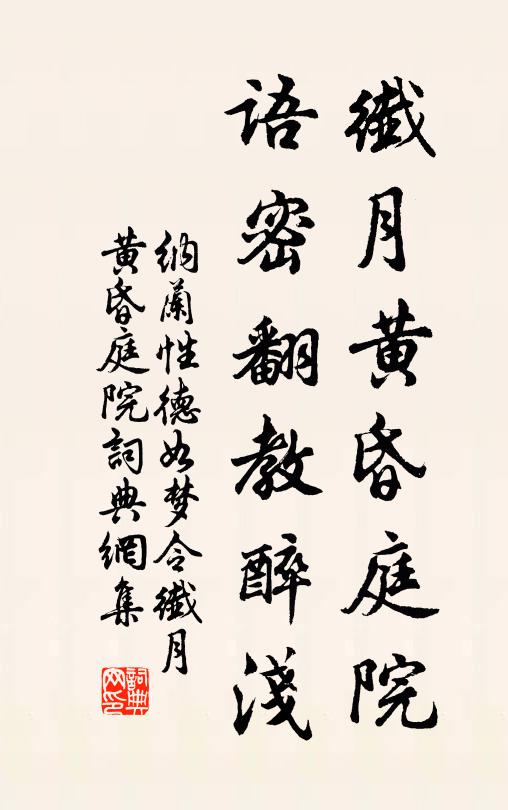 纖月黄昏庭院
语密翻教醉淺
納蘭性德如梦令纖月
黄昏庭院詞典網集
詞典
网印